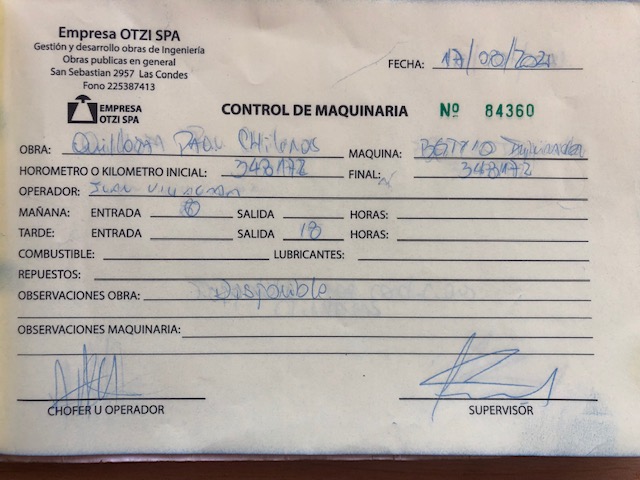 Empresa OTZI SPA
Gestión y desarrollo obras de Ingeniería
Obras publicas en general
San Sebastian 2957 Las Condes
Fono 225387413
FECHA: 17/08/2021
EMPRESA
OTZI SPA
CONTROL DE MAQUINARIA Nº 84360
OBRA: MAQUINA:
HOROMETRO O KILOMETRO INICIAL: 348172 FINAL: 348172
OPERADOR: Juan
MAÑANA: ENTRADA 8 SALIDA HORAS:
TARDE: ENTRADA SALIDA 18 HORAS:
COMBUSTIBLE: LUBRICANTES:
REPUESTOS:
OBSERVACIONES OBRA: Disponible
OBSERVACIONES MAQUINARIA:
CHOFER U OPERADOR SUPERVISOR